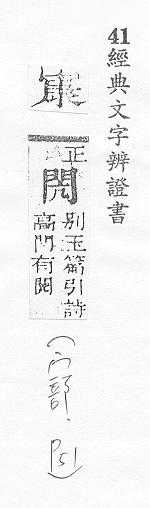 41經典文字辨證書
正
閌
別玉篇引詩
高門有閌
(门部, P51)